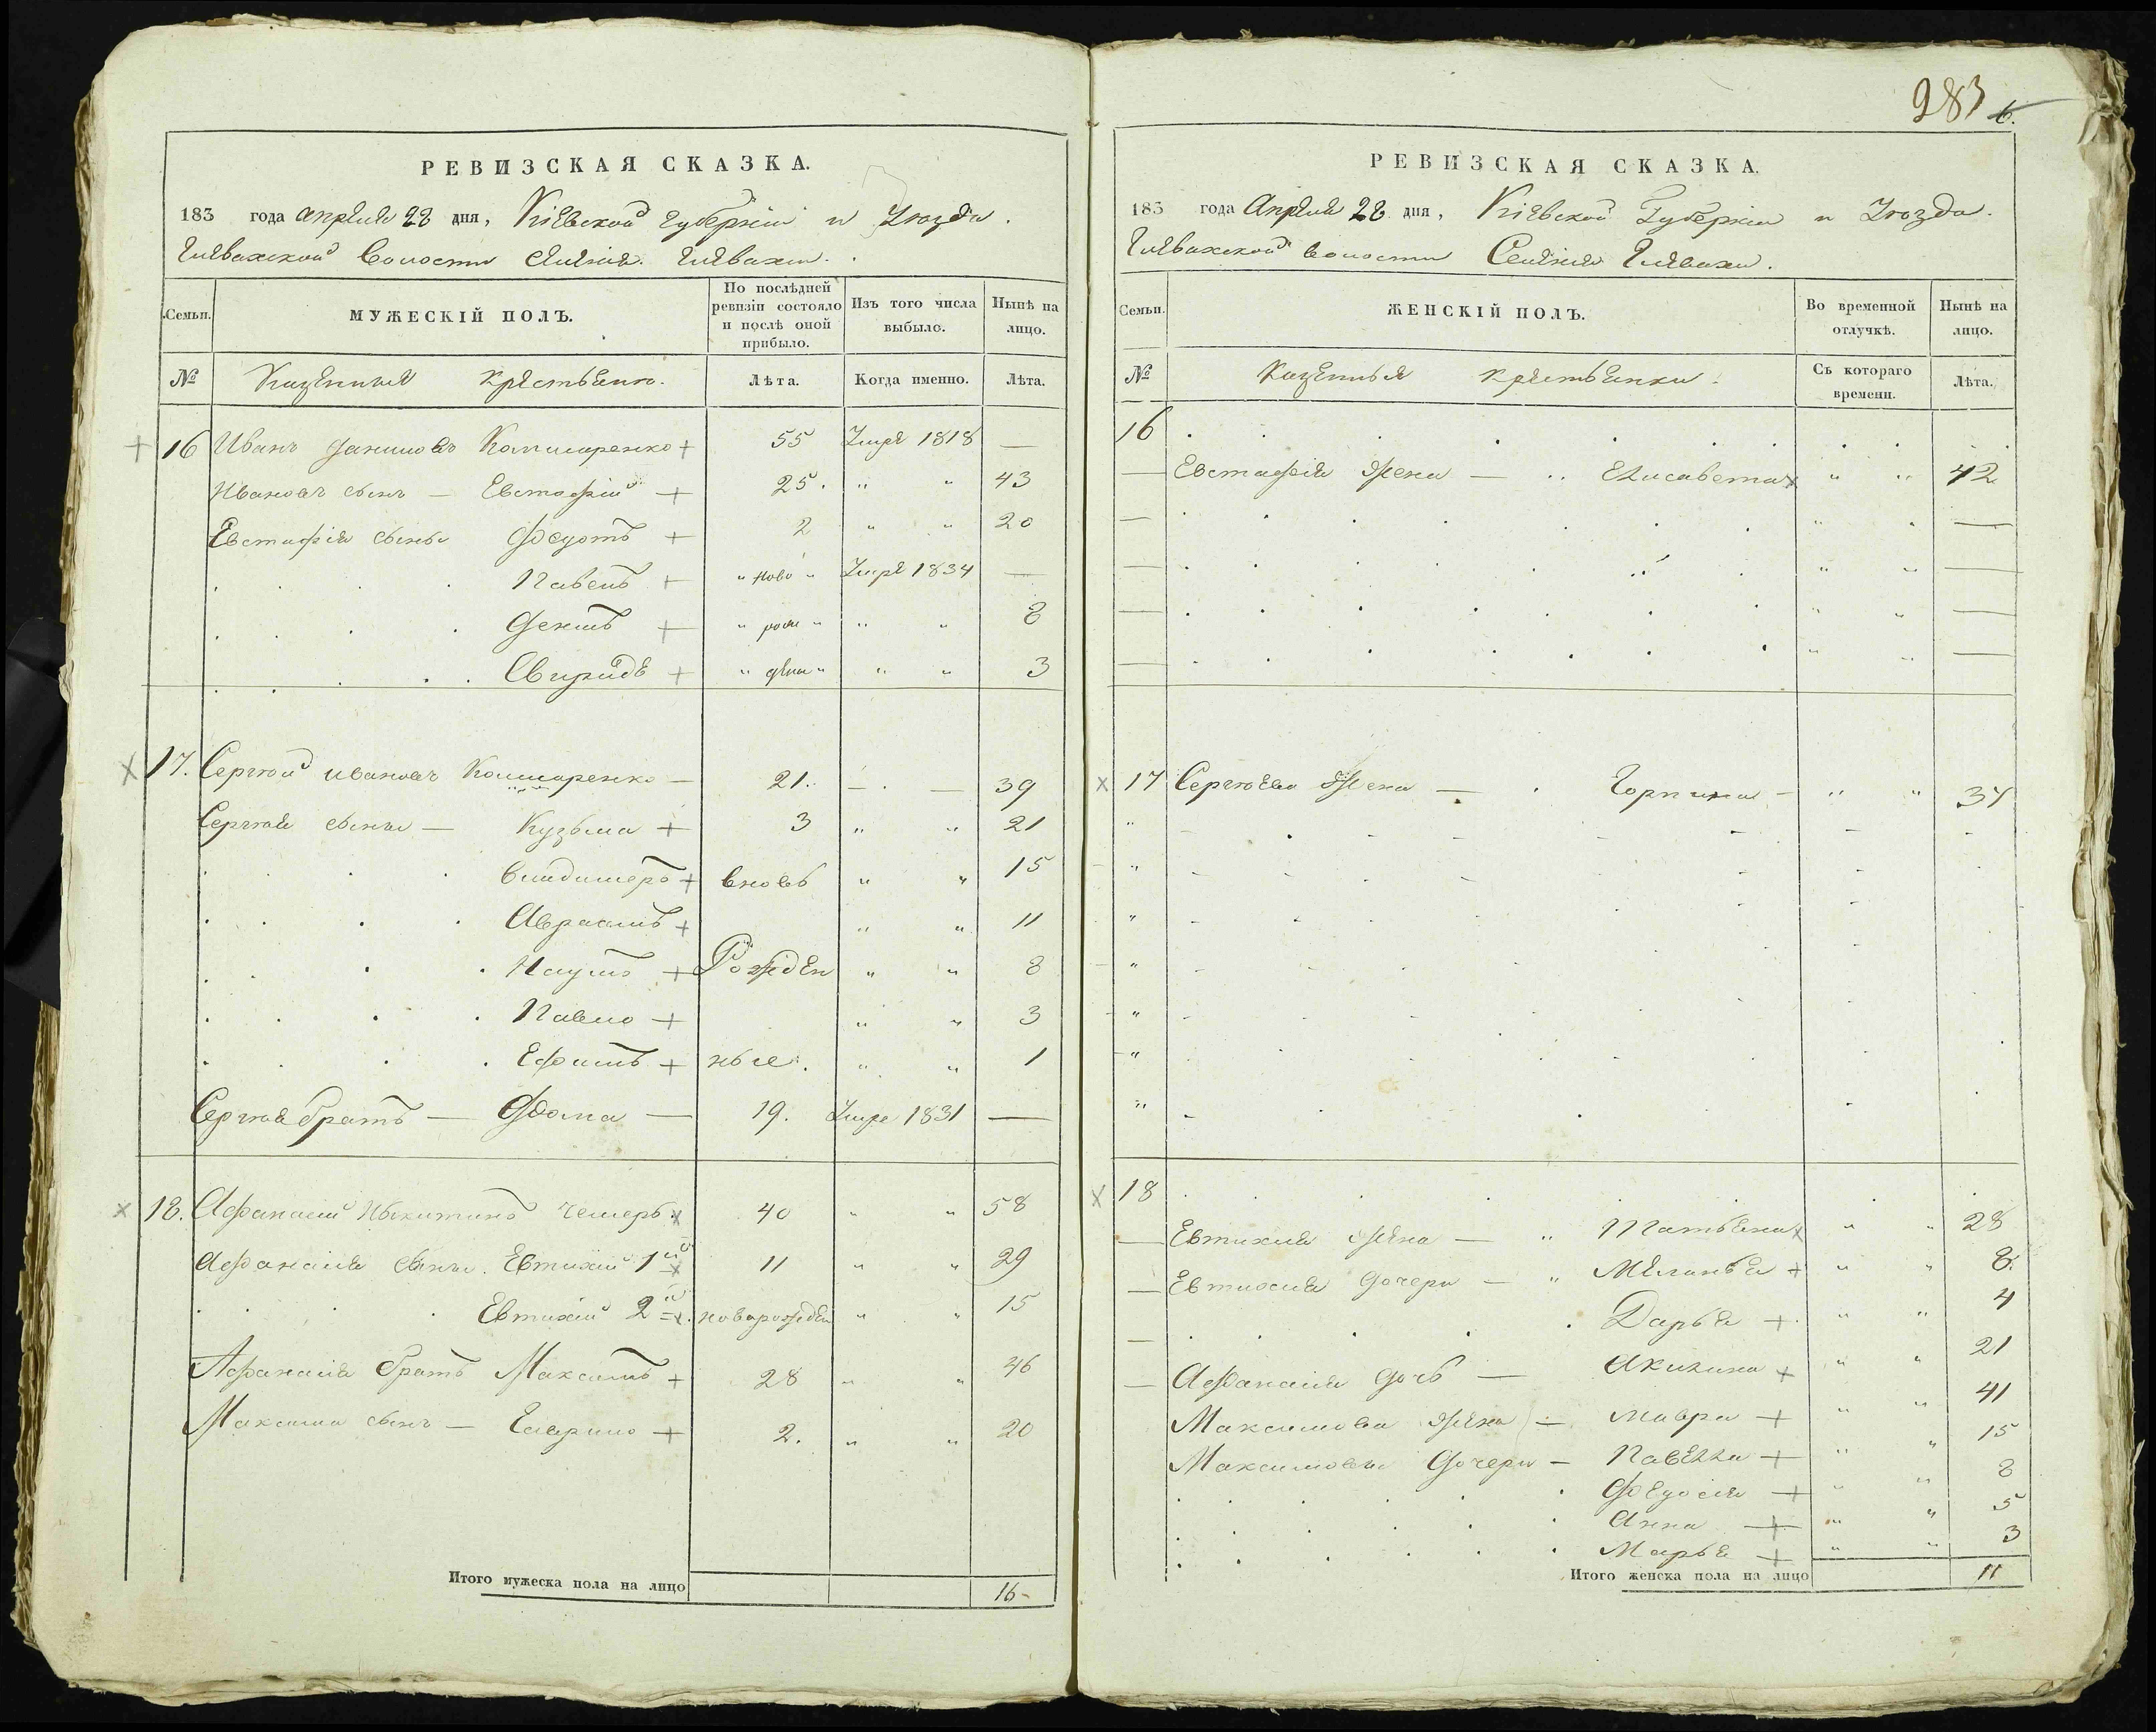 283 6.
РЕВИЗСКАЯ СКАЗКА.
183 года апреля 28 дня, Кіевской губерніи и уѣзда.
Глевахской волости селенія Глевахи.
Семьи.
МУЖЕСКІЙ ПОЛЪ.
По послѣдней ревизіи состояло и послѣ оной прибыло.
Изъ того числа выбыло.
Нынѣ на лицо.
№ Казенные крестьяне.
Лѣта. Когда именно. Лѣта.
16 Иванъ Даниловъ Коммаренко 55 Умре 1818 —
Ивановъ сынъ — Евстафій 25. " " 43
Евстафія сыны Федотъ 2 " " 20
Павелъ " ново " Умре 1834 —
Денисъ " рож " " " 8
Свиридъ " дены " " " 3
17. Сергѣй Ивановъ Коммаренко — 21. — — 39
Сергѣя сыны — Кузьма 3 " " 21
Владимеръ вновь " " 15
Авраамъ " " 11
Наумъ Рожден " " 8
Павло " " 3
Ефимъ ные. " " 1
Сергѣя братъ — Фома — 19. Умре 1831 —
18. Афанасій Никитинъ Чемеръ 40 " " 58
Афанасія сыны. Евтихій 1й 11 " " 29
Евтихій 2й новорожден " " 15
Афанасія братъ Максимъ 28 " " 46
Максима сынъ — Гаврило 2. " " 20
Итого мужеска пола на лицо 16 -
РЕВИЗСКАЯ СКАЗКА.
183 года Апреля 28 дня, Кіевской Губерніи и Уѣзда.
Глевахской волости Селенія Глевахи.
Семьи.
ЖЕНСКІЙ ПОЛЪ.
Во временной отлучкѣ.
Нынѣ на лицо.
№ Казенныя крестьянки.
Съ котораго времени. Лѣта.
16
— Евстафія жена — Елисавета " " 42
17 Сергѣева жена — Горпина - " " 37
18
— Евтихія жена — " Татьяна " " 28
— Евтихія дочери — " Меланья " " 8.
— Дарья " " 4
— Афанасія дочь — Акилина " " 21
Максимова жена — Мавра " " 41
Максимовы дочери — Павелла " " 15
Федосія " " 8
Анна " " 5
Марья " " 3
Итого женска пола на лицо 11